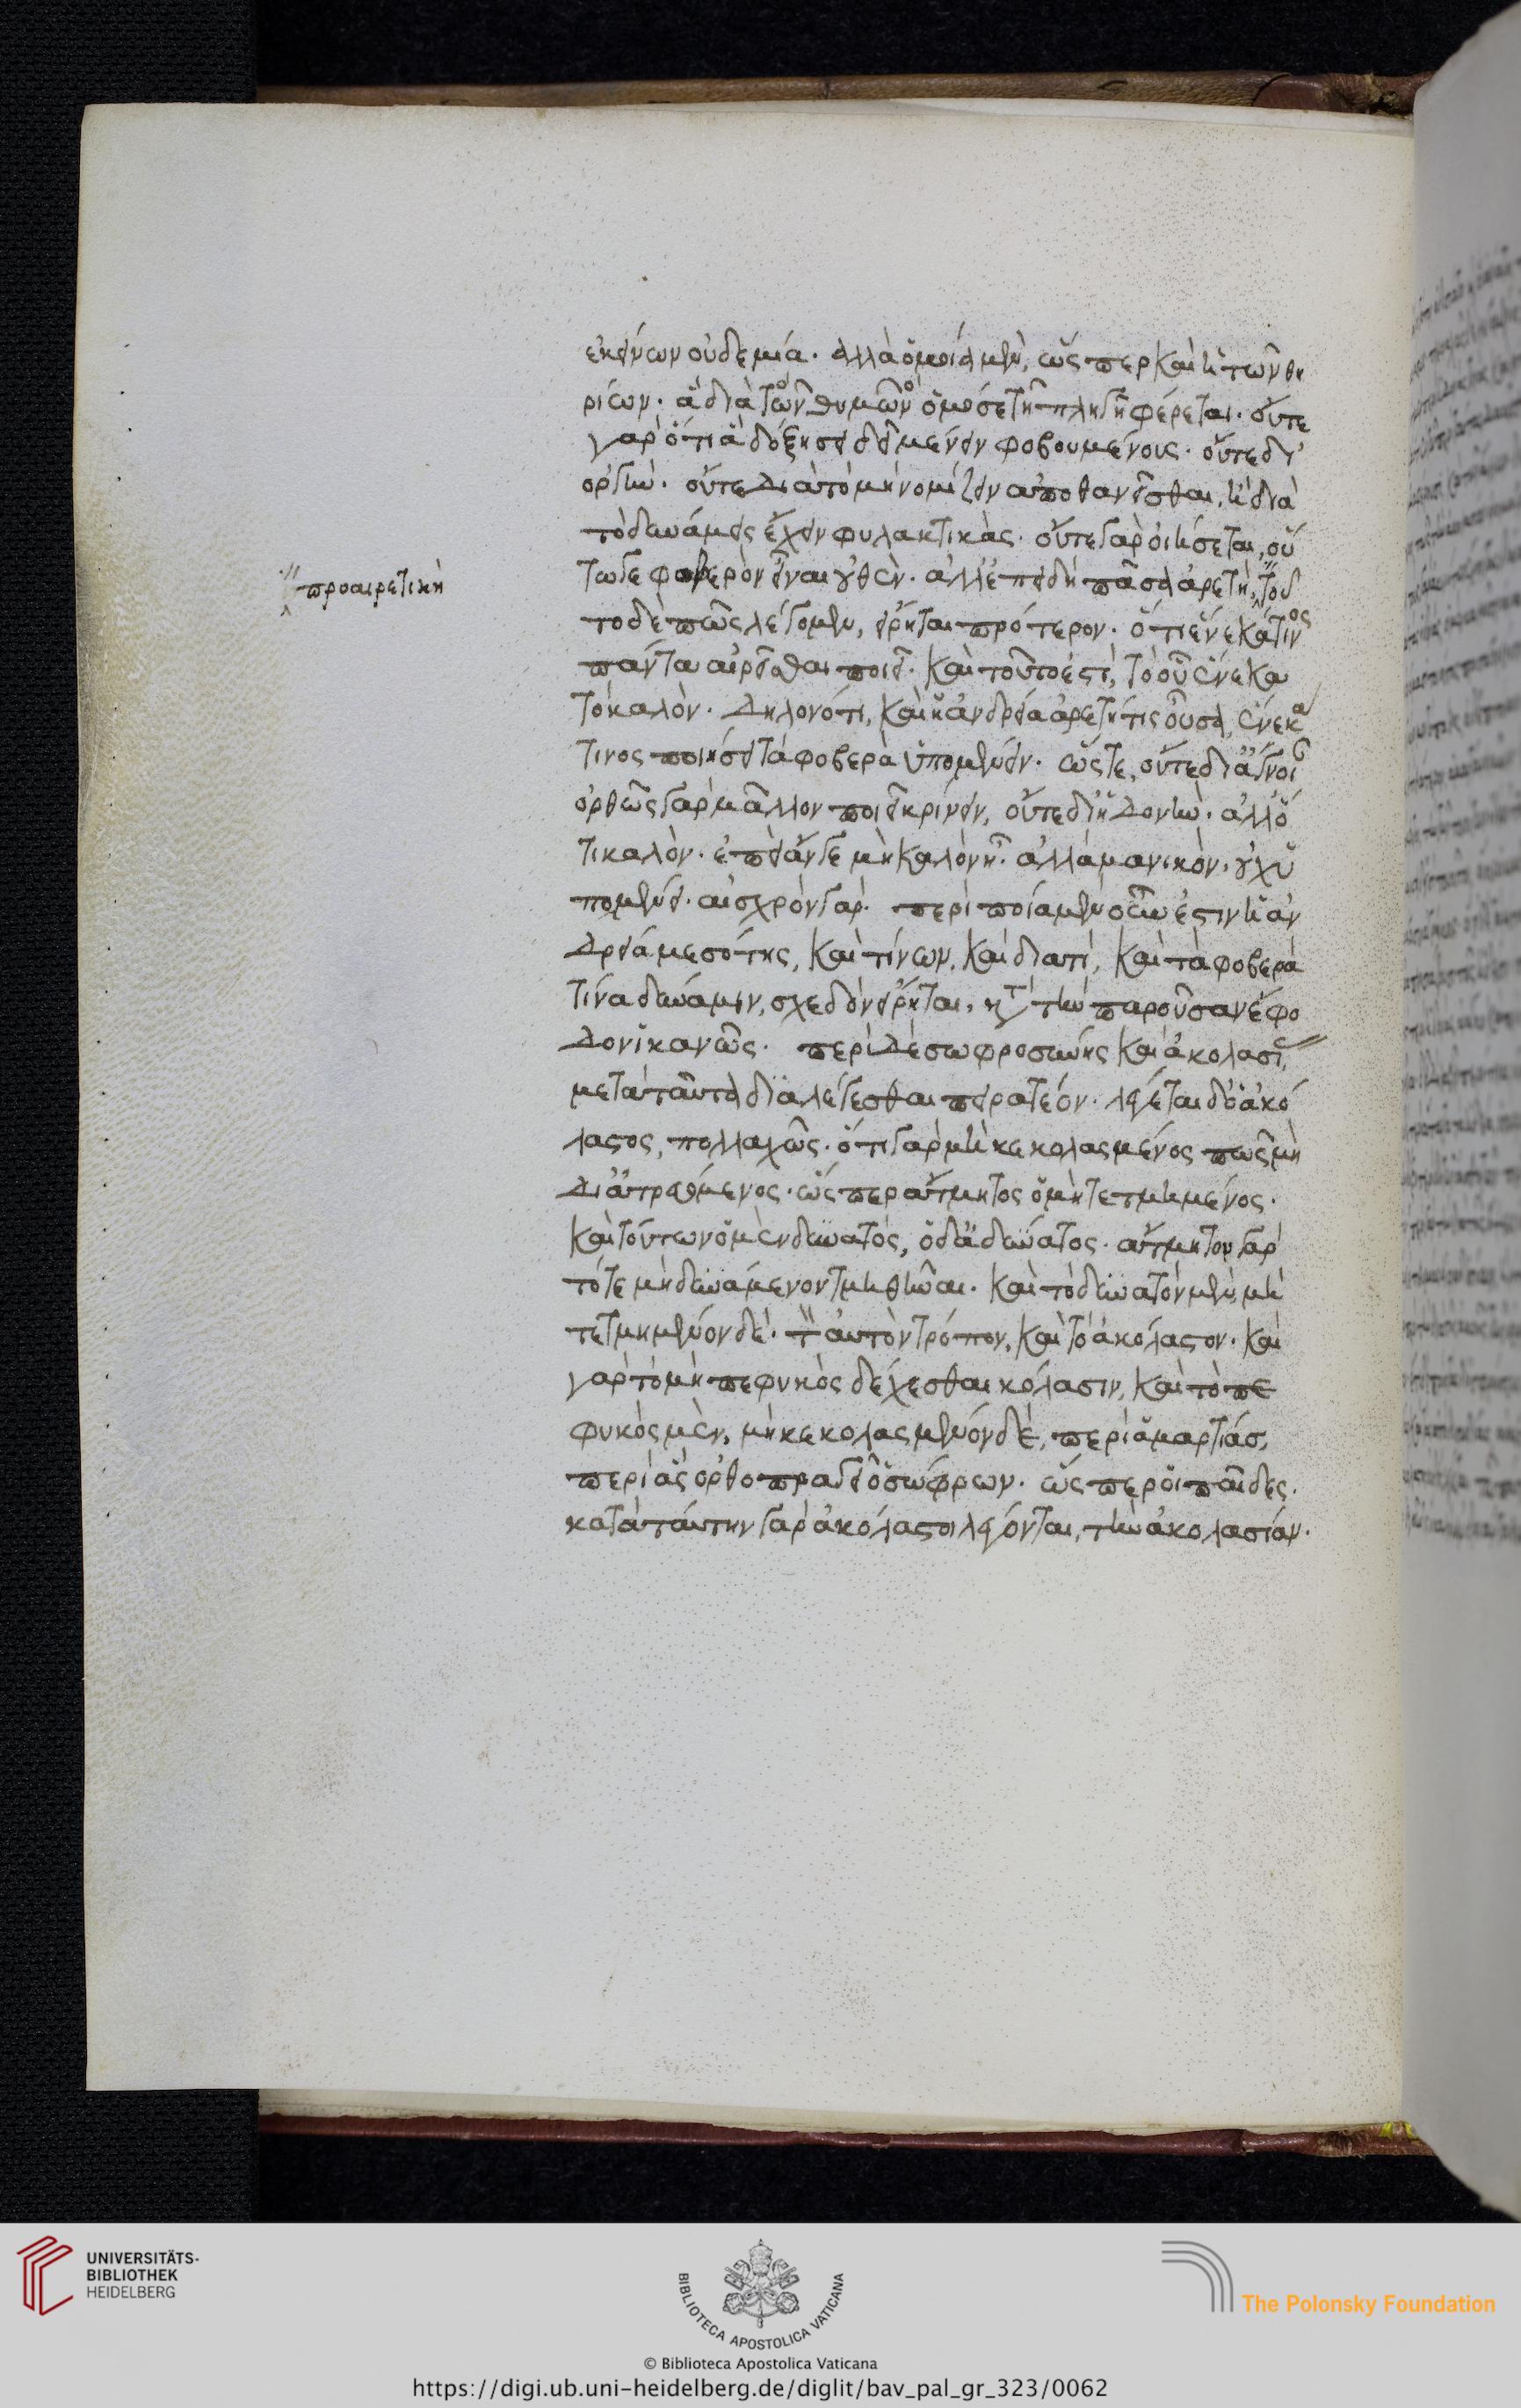 ἐκείνων οὐδεμία. ἀλλὰ ὁμοία μὲν, ὥσπερ καὶ ἡ τῶν θη
ρίων. ἃ διὰ τὸν θυμὸν ὁμόσε τῆ πληγῆ φέρεται. οὔτε
γὰρ ὅτι ἀδοξήσει δεῖ μένειν φοβουμένοις. οὔτε δι'
ὀργὴν. οὔτε διὰ τὸ μὴ νομίζειν ἀποθανεῖσθαι, ἢ διὰ
τὸ δυνάμεις ἔχειν φυλακτικὰς. οὔτε γὰρ οἰήσεται, οὕ
τω γε φοβερὸν εἶναι οὐθὲν. ἀλλ' ἐπειδὴ πᾶσα ἀρετὴ, τοῦ
προαιρετικὴ
το δὲ πῶς λέγομεν, εἴρηται πρότερον. ὅτι ἕνεκά τινος
πάντα αἱρεῖσθαι ποιεῖ. καὶ τοῦτο ἐστὶ, τὸ οὗ ἕνεκα
τὸ καλὸν. δῆλον ὅτι, καὶ ἡ ἀνδρεία ἀρετή τις οὖσα, ἕνεκά
τινος ποιήσει τὰ φοβερὰ ὑπομένειν. ὥστε, οὔτε δι' ἄγνοι
ὀρθῶς γὰρ μᾶλλον ποιεῖ κρίνειν, οὔτε δι' ἡδονὴν. ἀλλ' ὅ
τι καλὸν. ἐπεὶ ἄν γε μὴ καλὸν ἦ. ἀλλὰ μανικὸν. οὐχ ὑ
πομένει. αἰσχρὸν γὰρ. περὶ ποῖα μὲν οὖν ἐστιν ἡ ἀν
δρεία μεσότης, καὶ τίνων, καὶ διατί, καὶ τὰ φοβερὰ
τίνα δύναμιν, σχεδὸν εἴρηται, κατὰ τὴν παροῦσαν ἔφο
δον ἱκανῶς. περὶ δὲ σωφροσύνης καὶ ἀκολασί,
μετὰ ταῦτα διαλέγεσθαι πειρατέον. λέγεται δ' ὁ ἀκό
λαστος, πολλαχῶς. ὅτι γὰρ μὴ κεκολασμένος πῶς μὴ
δι' ἀτραθμενος. ὥσπερ ἄτμητος ὁ μὴ τετμημένος.
καὶ τούτων ὁ μὲν δυνατός, ὁ δ' ἀδύνατος. ἄτμητον γὰρ
τό τε μὴ δυνάμενον τμηθῆναι. καὶ τὸ δυνατὸν μὲν, μὴ
τετμημένον δὲ. τὸν αὐτὸν τρόπον, καὶ τὸ ἀκόλαστον. καὶ
γὰρ τὸ μὴ πεφυκὸς δέχεσθαι κόλασιν, καὶ τὸ πε
φυκὸς μὲν, μὴ κεκολασμένον δὲ, περὶ ἁμαρτίας,
περὶ ἃς ὀρθοπραγεῖ ὁ σώφρων. ὥσπερ οἱ παῖδες.
κατὰ ταύτην γὰρ ἀκόλαστοι λέγονται, τὴν ἀκολασίαν.
UNIVERSITÄTS-
BIBLIOTHEK
HEIDELBERG
BIBLIOTECA APOSTOLICA VATICANA
The Polonsky Foundation
© Biblioteca Apostolica Vaticana
https://digi.ub.uni-heidelberg.de/diglit/bav_pal_gr_323/0062